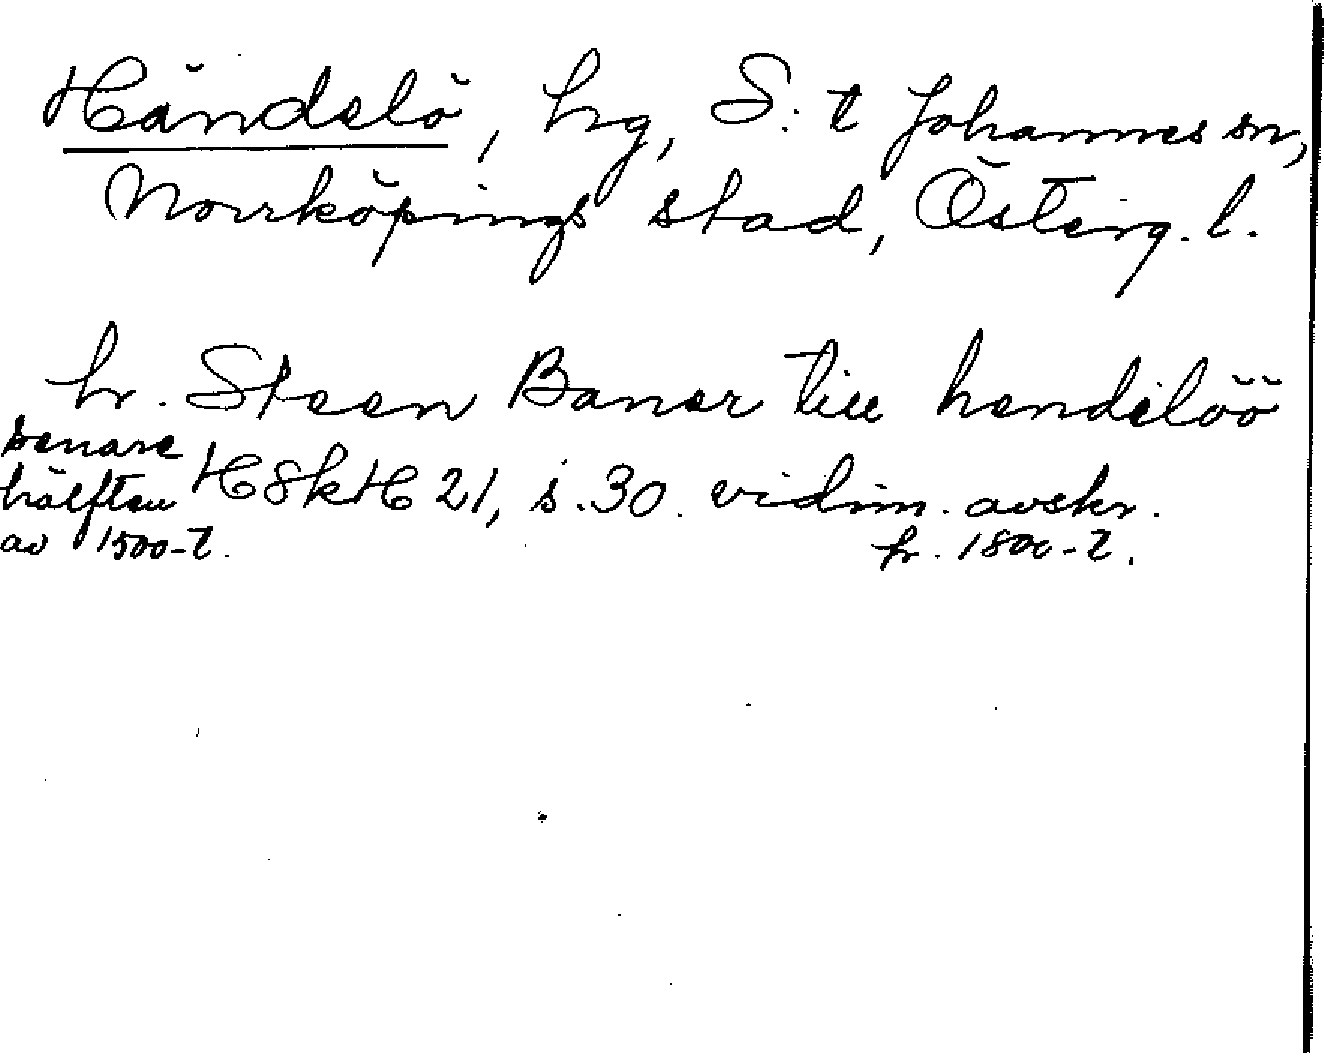 Händelö, hrg, S:t Johannes sn,
Norrköpings stad, Österg. l.
hr. Steen Baner till hendelöö
senare
hälften HSkH 21, s. 30. vidim. avskr.
av 1500-t. fr. 1800-t.